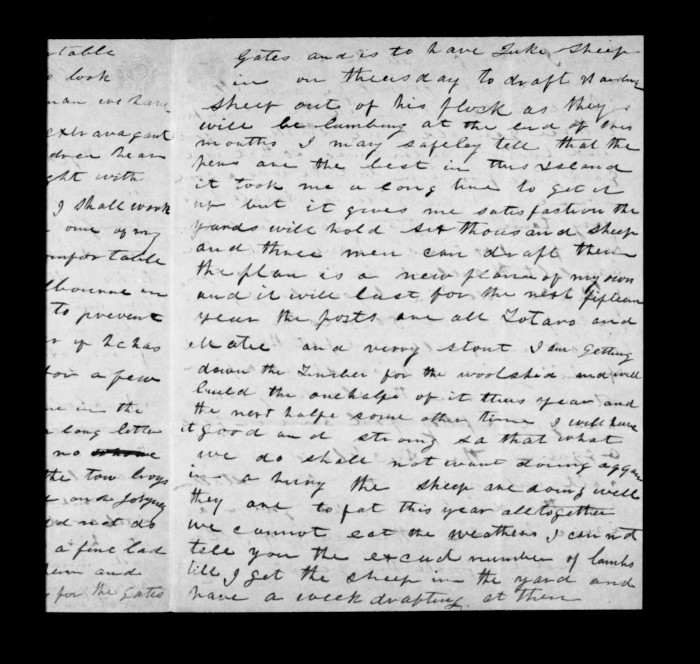 rtable
o look
man we have
extravagant
dren hear
ght with
I shall work
one of my
omfortable
lbourne in
to prevent
r if he has
for a few
ne in the
a long letter
no
the tow boys
and
d not do
a fine lad
hem and
for the Gates
Gates and is to have Luke Sheep
in on theursday to draft
sheep out of his flock as they
will be lumbing at the end of this
months I may safeley tell that the
pens are the best in this Island
it took me a long time to get it
up but it gives me satesfastion the
yards will hold sex thousand sheep
and three men can draft them
the plan is a new plann of my own
and it will last for the next fifteen
year the posts are all Totaro and
Matie and verry stout I am getting
down the Timber for the woolshed and will
build the onehalfe of it thus year and
the next halfe some other time I will have
it good and strong sa that what
we do shall not want doing aggan
in a hurry the sheep are doing well
they are to fat this year alltogether
we cannot eat the weathers I can not
tell you the excad number of lambs
till I get the sheep in the yard and
have a week drafting at them